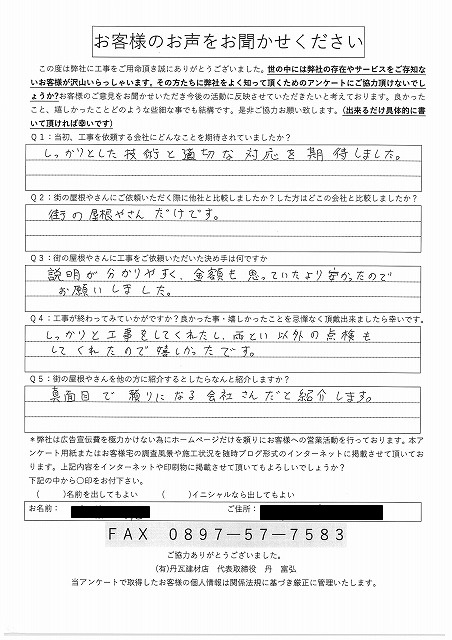 お客様のお声をお聞かせください
この度は弊社に工事をご用命頂き誠にありがとうございました。世の中には弊社の存在やサービスをご存知な
いお客様が沢山いらっしゃいます。その方たちに弊社をよく知って頂くためのアンケートにご協力頂けないでし
ょうか?お客様のご意見をお聞かせいただき今後の活動に反映させていただきたいと考えております。良かった
こと、嬉しかったことどのような些細な事でも結構です。是非ご協力お願い致します。(出来るだけ具体的に書
いて頂ければ幸いです)
Q1:当初、工事を依頼する会社にどんなことを期待されていましたか?
しっかりとした技術と適切な対応を期待しました。
Q2:街の屋根やさんにご依頼いただく際に他社と比較しましたか?した方はどこの会社と比較しましたか?
街の屋根やさんだけです。
Q3:街の屋根やさんに工事をご依頼いただいた決め手は何ですか
説明が分かりやすく、金額も思っていたより安かったので
お願いしました。
Q4:工事が終わってみていかがですか?良かった事・嬉しかったことを忌憚なく頂戴出来ましたら幸いです。
しっかりと工事をしてくれたし、雨とい以外の点検も
してくれたので嬉しかったです。
Q5:街の屋根やさんを他の方に紹介するとしたらなんと紹介しますか?
真面目で頼りになる会社さんだと紹介します。
*弊社は広告宣伝費を極力かけない為にホームページだけを頼りにお客様への営業活動を行っております。本ア
ンケート用紙またはお客様宅の調査風景や施工状況を随時ブログ形式のインターネットに掲載させて頂いてお
ります。上記内容をインターネットや印刷物に掲載させて頂いてもよろしいでしょうか?
下記の中から○印をお付下さい。
( )名前を出してもよい ( )イニシャルなら出してもよい
お名前: ご住所:
FAX 0897-57-7583
ご協力ありがとうございました。
(有)丹瓦建材店 代表取締役 丹 富弘
当アンケートで取得したお客様の個人情報は関係法規に基づき厳正に管理いたします。